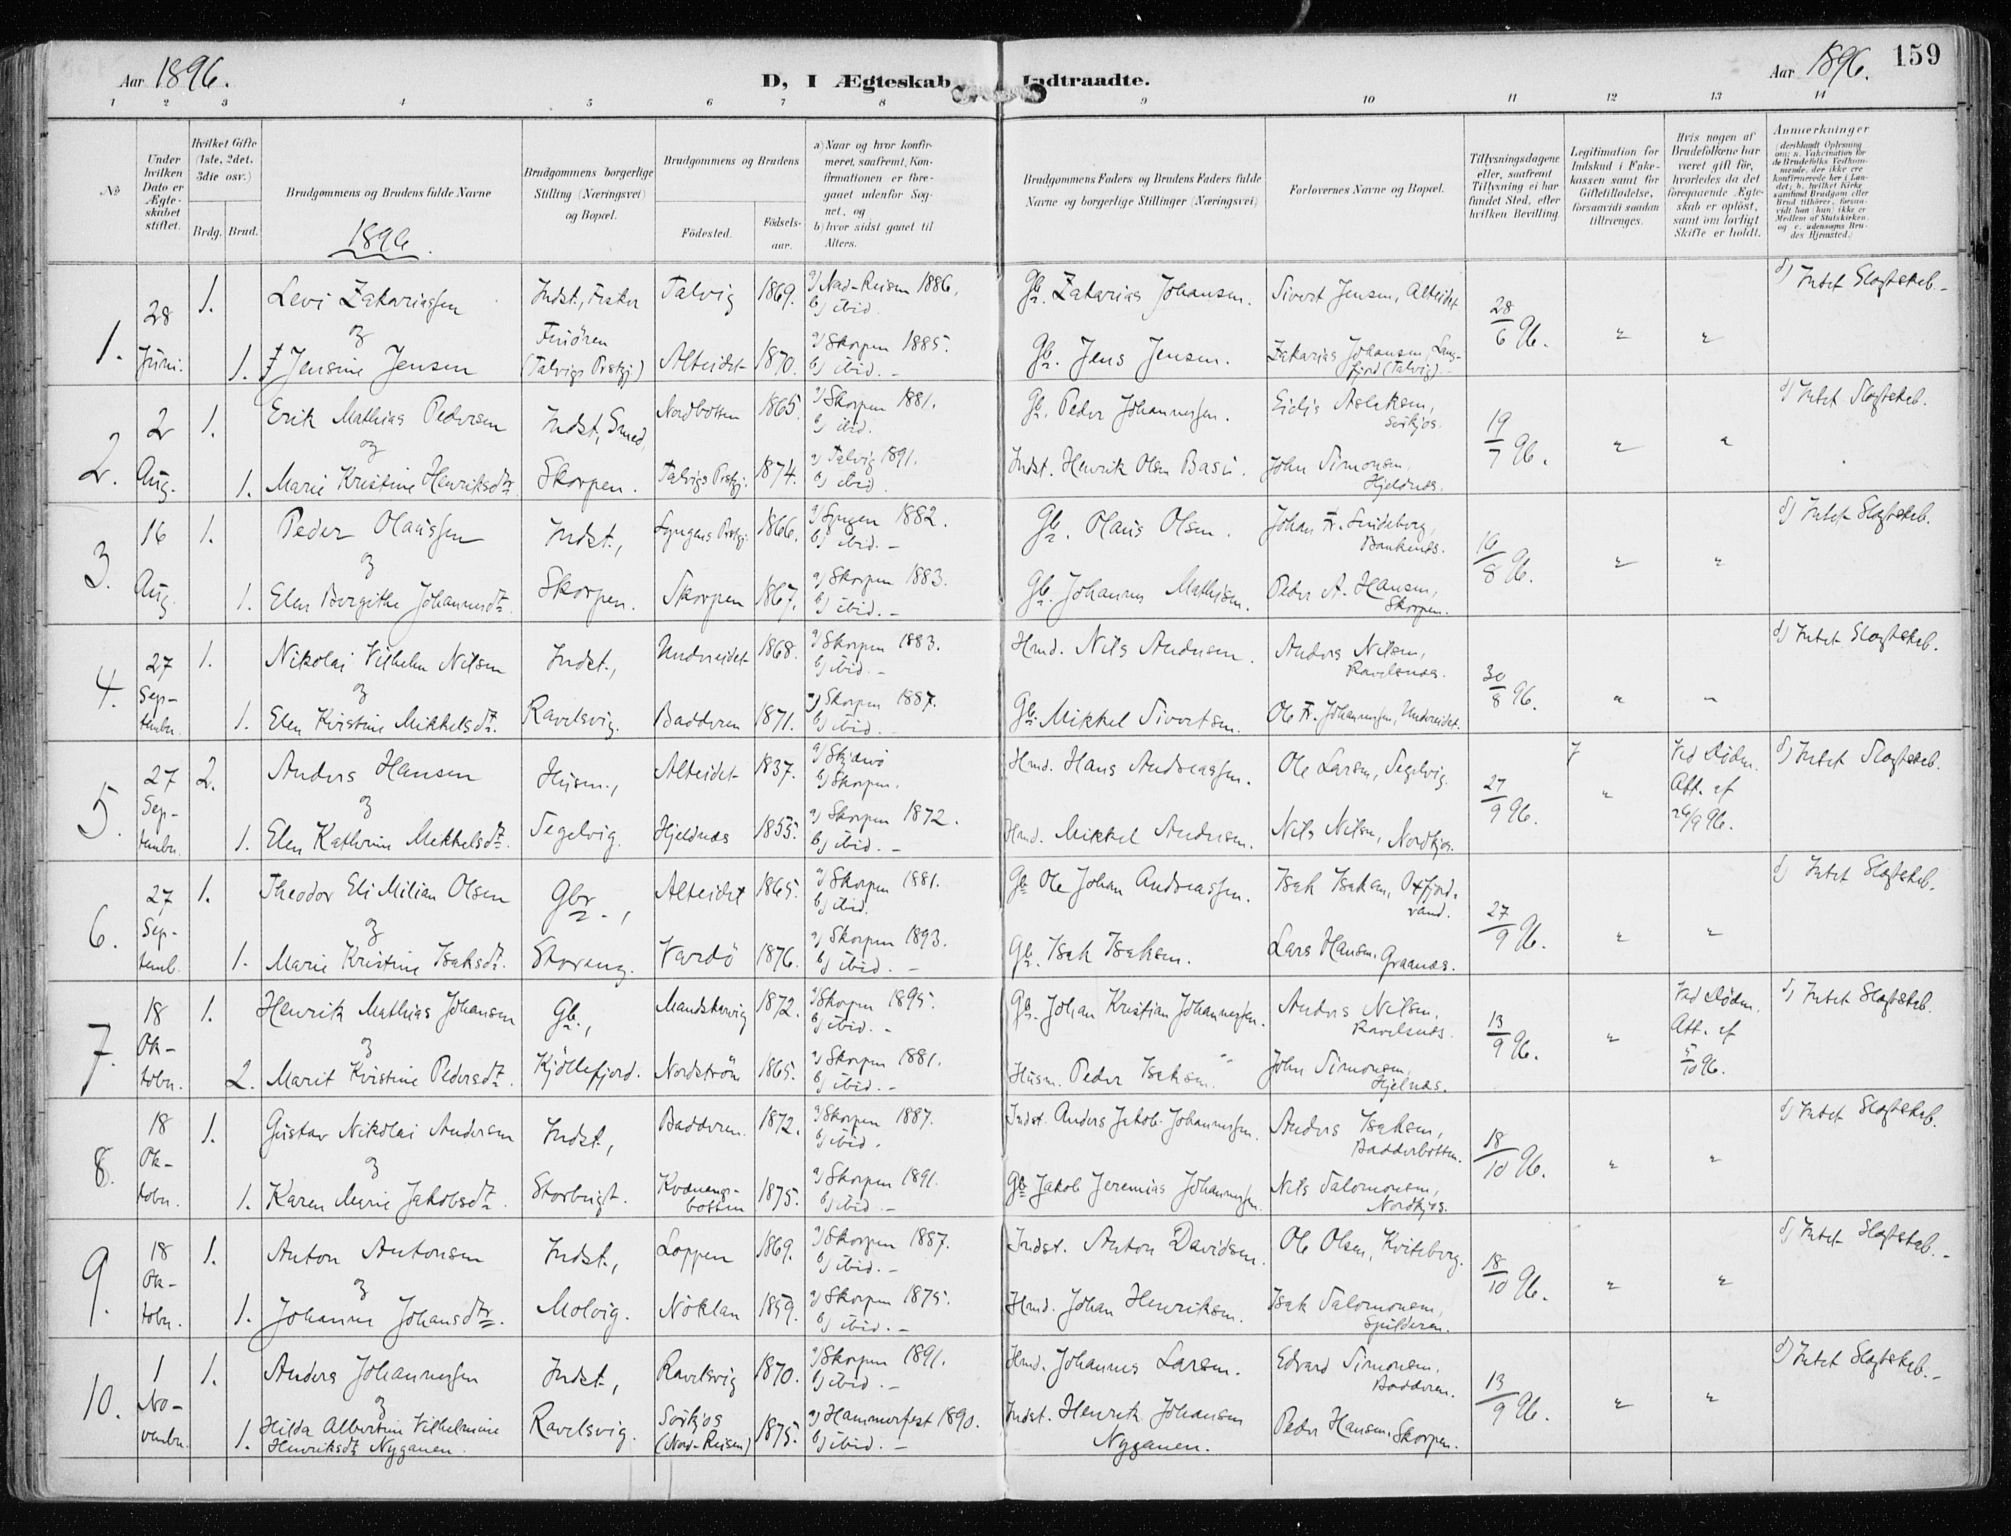 Aar 1896.
D, I Ægteskab Indtraadte.
Aar 1896. 159
1 2 3 4 5 6 7 8 9 10 11 12 13 14
No
Under hvilken Dato er Ægteskabet stiftet.
Hvilket Gifte (1ste, 2det, 3die osv.)
Brdg. Brud.
Brudgommens og Brudens fulde Navne
1896.
Brudgommens borgerlige Stilling (Næringsvei) og Bopæl.
Brudgommens og Brudens
Födested. Födsels-aar.
a) Naar og hvor konfirmeret, saafremt, Konfirmationen er foregaaet udenfor Sognet, og
b) hvor sidst gaaet til Alters.
Brudgommens Faders og Brudens Faders fulde Navne og borgerlige Stillinger (Næringsvei)
Forlovernes Navne og Bopæl.
Tillysningsdagene eller, saafremt Tillysning ei har fundet Sted, efter hvilken Bevilling
Legitimation for Indskud i Enkekassen samt for Giftetilladelse, forsaavidt saadan tiltrænges.
Hvis nogen af Brudefolkene har været gift før, hvorledes da det foregaaende Ægteskab er oplöst, samt om lovligt Skifte er holdt.
Anmærkninger
1. 28 Juni. 1. Levi Zakariassen Indst., Fisker Talvig 1869. a) Nord-Reisen 1886. b) ibid. Gbr. Zakarias Johansen. Sivert Jensen, Alteidet 28/6 96. " " d) Intet Slægtskab.
og
1. Jensine Jensen (Talvigs Prstgj.) Alteidet 1870. a) Skorpen 1885. b) ibid. Gbr. Jens Jensen. Zakarias Johansen, Langfjord (Talvig)
2. 2 Aug. 1. Erik Mathias Pedersen Indst., Smed, Nordbotten 1865. a) Skorpen 1881. b) ibid. Gbr. Peder Johannessen. Eidis Aslaksen, Sörkjos. 19/7 96. " " d) Intet Slægtskab.
og
1. Marie Kristine Henriksdtr. Skorpen. Talvigs Prstgj. 1874. a) Talvig 1891. b) ibid. Indst. Henrik Olsen Basi. John Simonsen, Hjeldnæs.
3. 16 Aug. 1. Peder Olaussen Indst., Lyngens Prstgj. 1866. a) Lyngen 1882. b) ibid. Gbr. Olaus Olsen. Johan Fr. Lindeborg, 16/8 96. " " d) Intet Slægtskab.
og
1. Elen Bergithe Johannesdtr. Skorpen. Skorpen 1867. a) Skorpen 1883. b) ibid. Gbr. Johannes Mathisen. Peder A. Hansen, Skorpen.
4. 27 September. 1. Nikolai Vilhelm Nilsen Indst., Undereidet 1868. a) Skorpen 1883. b) ibid. Hmd. Nils Andersen. Anders Nilsen, Ravelsnæs. 30/8 96. " " d) Intet Slægtskab.
og
1. Elen Kristine Mikkelsdtr. Ravelsvig. Badderen 1871. a) Skorpen 1887. b) ibid. Gbr. Mikkel Sivertsen. Ole Fr. Johannessen, Undereidet.
5. 27 September. 2. Anders Hansen Husm., Alteidet 1837. a) Skjærvö b) Skorpen. Hmd. Hans Andreassen. Ole Larsen, Segelvig. 27/9 96. " Ved Döden. Att. af 26/9 96. d) Intet Slægtskab.
og
1. Elen Kathrine Mekkelsdtr. Segelvig. Hjeldnæs 1855. a) Skorpen 1872. b) ibid. Hmd. Mikkel Andersen. Nils Nilsen, Nordkjos.
6. 27 Septemb. 1. Theodor Eli Milian Olsen Gbr., Alteidet 1865. a) Skorpen 1881. b) ibid. Gbr. Ole Johan Andreassen. Isak Isaksen, Oxfjordvand. 27/9 96. " " d) Intet Slægtskab.
og
1. Marie Kristine Isaksdtr. Storeng. Vardö 1876. a) Skorpen 1893. b) ibid. Gbr. Isak Isaksen. Lars Hansen, Graanæs.
7. 18 Oktober. 1. Henrik Mathias Johansen Gbr., Mandskarvig 1872. a) Skorpen 1895. b) ibid. Gbr. Johan Kristian Johannessen. Anders Nilsen, Ravelsnæs. 13/9 96. " Ved Döden. Att. af 5/10 96. d) Intet Slægtskab.
og
2. Marit Kristine Pedersdtr. Kjöllefjord. Nordströn 1865. a) Skorpen 1881. b) ibid. Husm. Peder Isaksen. John Simonsen, Hjelnæs.
8. 18 Oktober. 1. Gustav Nikolai Andersen Indst., Badderen. 1872. a) Skorpen 1887. b) ibid. Indst. Anders Jakob Johannessen. Anders Isaksen, Badderbotten. 18/10 96. " " d) Intet Slægtskab.
og
1. Karen Marie Jakobsdtr. Storbugt. Kvænangsbotten 1875. a) Skorpen 1891. b) ibid. Gbr. Jakob Jeremias Johannessen. Nils Salomonsen, Nordkjos.
9. 18 Oktober. 1. Anton Antonsen Indst., Loppen 1869. a) Skorpen 1887. b) ibid. Indst. Anton Davidsen. Ole Olsen, Kviteberg. 18/10 96. " " d) Intet Slægtskab.
og
1. Johanne Johansdtr. Molvig. Nöklan 1859. a) Skorpen 1875. b) ibid. Hmd. Johan Henriksen. Isak Salomonsen, Spilderen.
10. 1 November. 1. Anders Johannessen Indst., Ravelsvig 1870. a) Skorpen 1891. b) ibid. Hmd. Johannes Larsen. Edvard Simonsen, Badderen. 13/9 96. " " d) Intet Slægtskab.
og
1. Hilda Albertine Vilhelmine Henriksdtr. Nyganen. Ravelsvig. Sörkjos (Nord-Reisen) 1875. a) Hammerfest 1890. b) ibid. Indst. Henrik Johansen Nyganen. Peder Hansen, Skorpen.